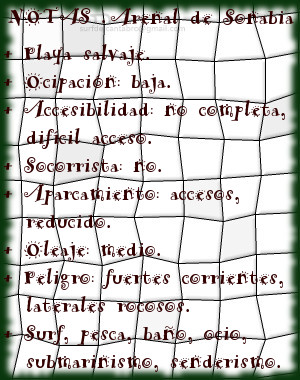 NOTAS Arenal de Sonabia
+ Playa salvaje.
+ Ocipacion: baja.
+ Accesibilidad: no completa,
dificil acceso.
+ Socorrista: no.
+ Aparcamiento: accesos,
reducido.
+ Oleaje: medio.
+ Peligro: fuertes corrientes,
laterales rocosos.
+ Surf, pesca, baño, ocio,
submarinismo, senderismo.